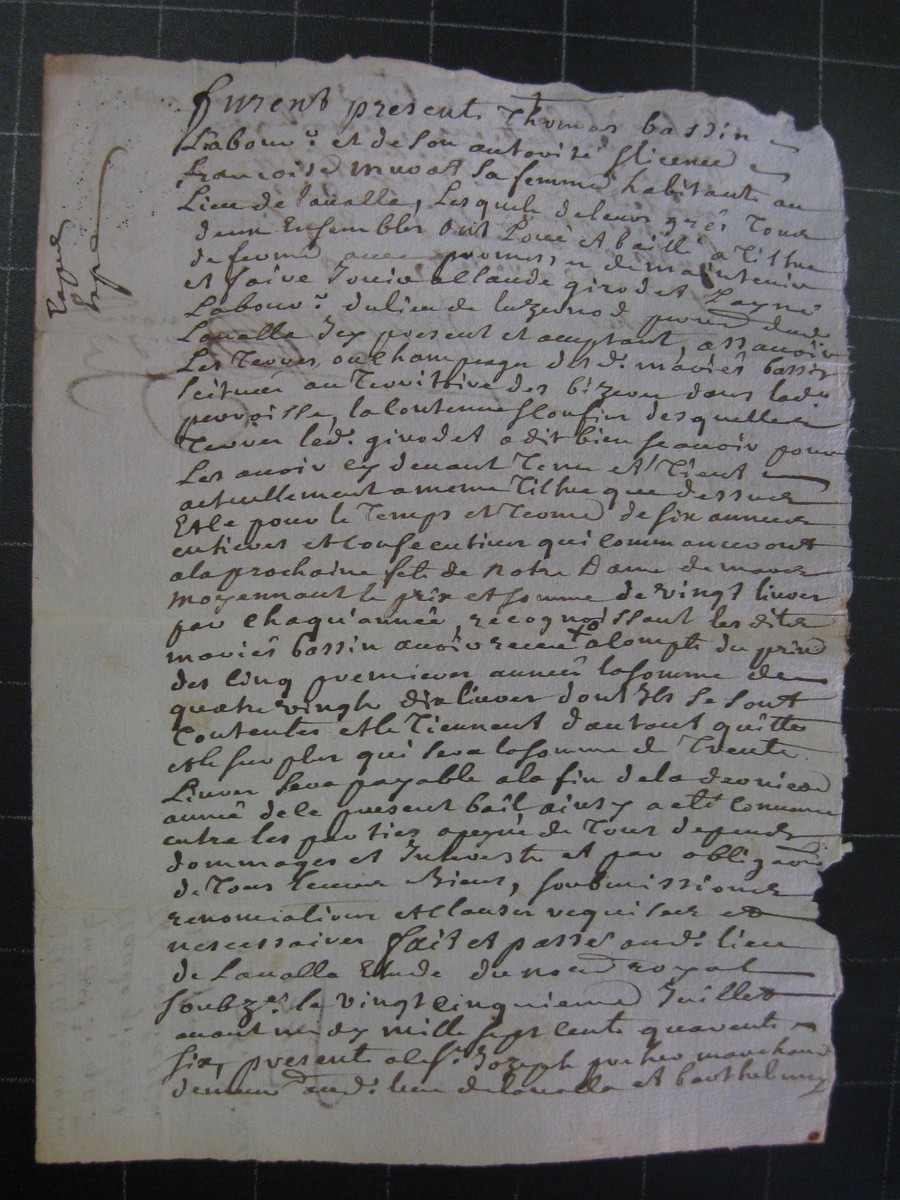 furent presents Thomas bassin
Labour.r et de son autorité & licence
françoise muvat sa femme habitants au
Lieu de Lavalla, Lesquels de leurs grés Tous
deux Ensembles ont Loué et baillé a Tiltre
de ferme avec promesse de maintenir
et faire Jouir a Claude girodet
Labour.r du lieu de
Lavalla Icy present et acceptant, assavoir
Les Terres ou Champeage des d. mariés bassin
scitués au Territoire des bizeou dans lad.
perroisse, la Contenue & Confins desquelles
Terres led. girodet a dit bien scavoir pour
Les avoir cy devant Tenu et Tient
actuellement a meme Tiltre que dessus
Et le pour le Temps et Terme de six années
entieres et Consecutives qui Commanceront
a la prochaine fete de Notre Dame de mars
moyennant le prix et somme de vingt livres
par Chaqu'année, recognoissant les dits
mariés bassin avoir receu a Compte du prix
des Cinq premieres années la somme de
quatre vingts dix livres dont Ils se sont
Contentés et le Tiennent d'autant quitte
et le surplus qui sera la somme de Trente
Livres sera payable a la fin de la derniere
année de le present bail ainsy a eté Convenu
entre les parties a peyne de Tous depends
dommages et Interests et par obligation
de Tous leurs Biens, soubmissions
renonciations et Clauses requises et
nescessaires fait et passé aud. lieu
de Lavalla Etude du no.re royal
soubz.né le vingt cinquieme Juillet
avant midy mille sept cents quarente
six, presents a le s.r Jozeph marchand
demeur. aud. lieu de Lavalla et barthelmy